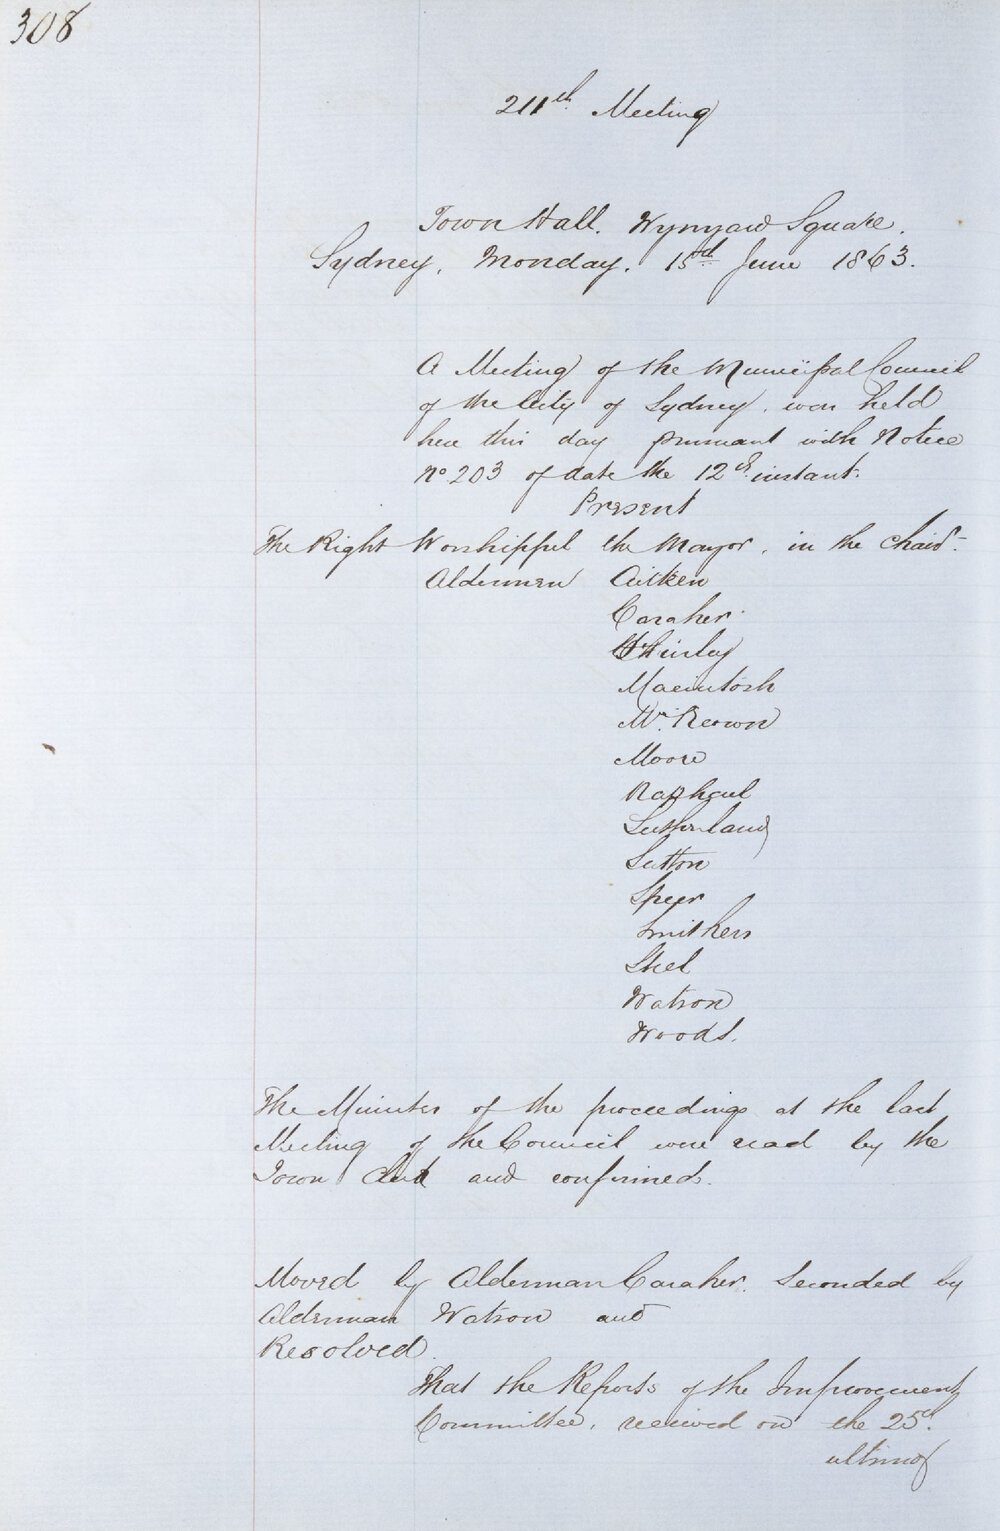 308
211th Meeting
Town Hall. Wynyard Square.
Sydney, Monday, 15th June 1863.
A Meeting of the Municipal Council
of the City of Sydney, was held
here this day pursuant with Notice
No 203 of date the 12th instant.
Present
The Right Worshipful the Mayor, in the chair.
Aldermen Aitken
Caraher
Hinley
Macintosh
Mc.Keown
Moore
Raphael
Sutherland
Sutton
Speer
Smithers
Shel
Watson
Woods.
The Minutes of the proceedings at the last
Meeting of the Council were read by the
Town Clerk and confirmed.
Moved by Alderman Caraher. Seconded by
Alderman Watson and
Resolved
That the Reports of the Improvement
Committee, received on the 25th
ultimo